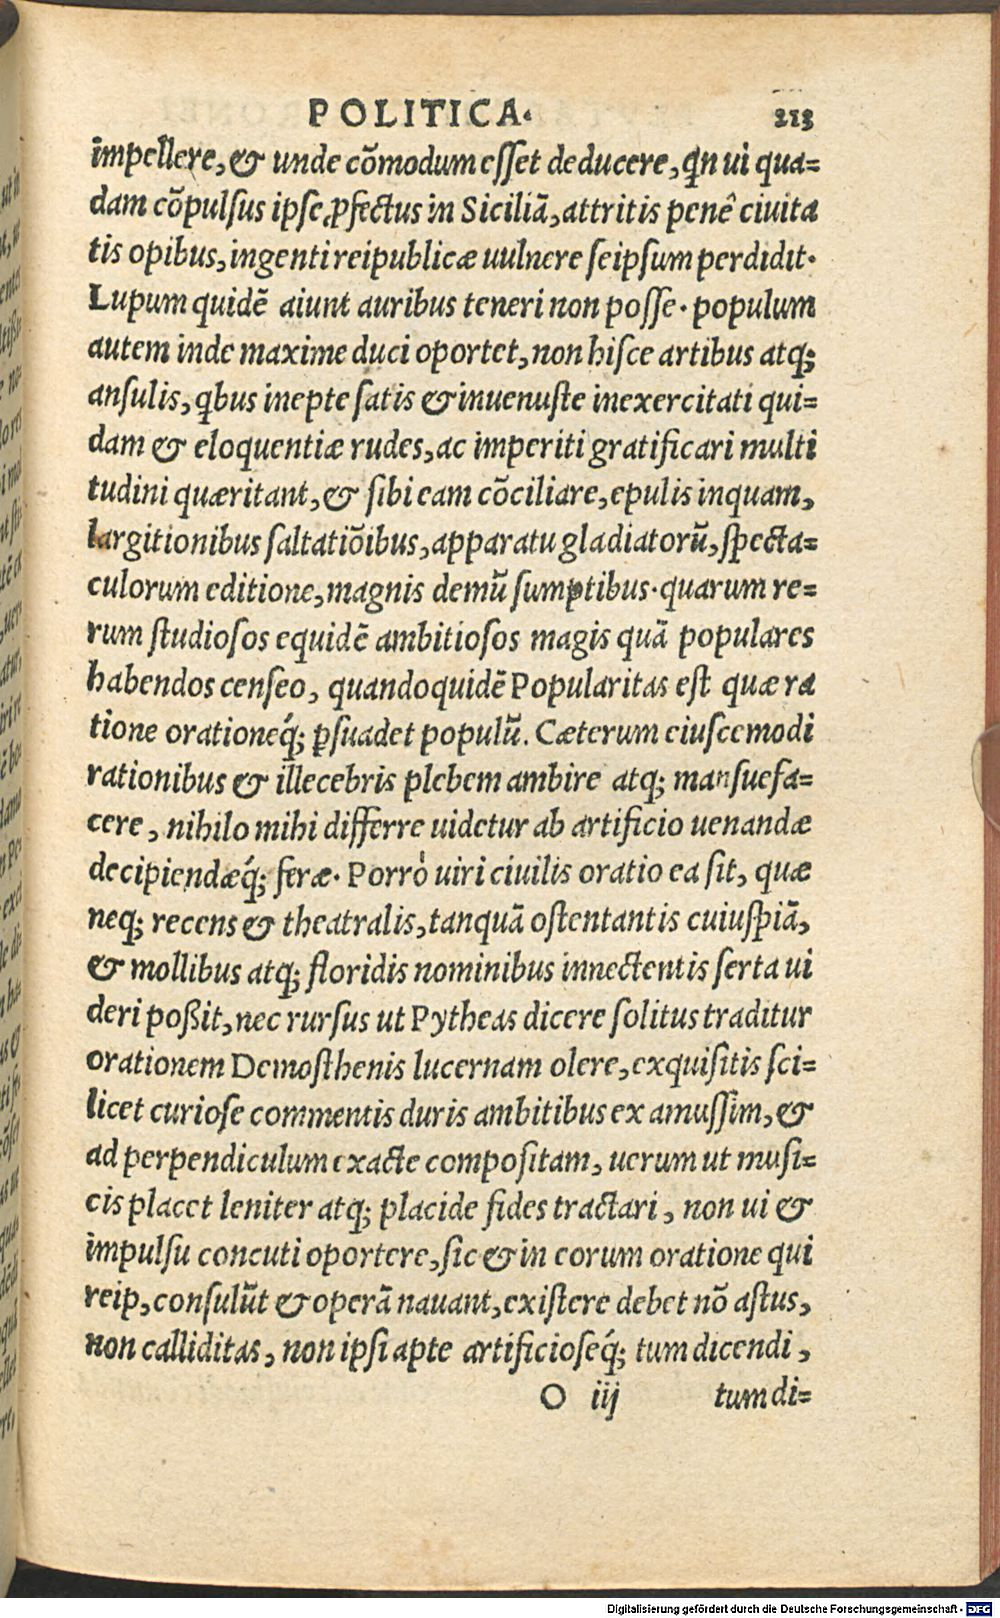 POLITICA. 213
impellere, & unde cōmodum esset deducere, qn ui qua=
dam cōpulsus ipse pfectus in Siciliā, attritis penê ciuita
tis opibus, ingenti reipublicæ uulnere seipsum perdidit.
Lupum quidē aiunt auribus teneri non posse. populum
autem inde maxime duci oportet, non hisce artibus atq;
ansulis, qbus inepte satis & inuenuste inexercitati qui=
dam & eloquentiæ rudes, ac imperiti gratificari multi
tudini quæritant, & sibi eam cōciliare, epulis inquam,
largitionibus saltatiōibus, apparatu gladiatorū, specta=
culorum editione, magnis demū sumptibus. quarum re=
rum studiosos equidē ambitiosos magis quā populares
habendos censeo, quandoquidē Popularitas est quæ ra
tione orationeq́; psuadet populū. Cæterum eiuscemodi
rationibus & illecebris plebem ambire atq; mansuefa=
cere, nihilo mihi differre uidetur ab artificio uenandæ
decipiendæq́; feræ. Porrò uiri ciuilis oratio ea sit, quæ
neq; recens & theatralis, tanquā ostentantis cuiuspiā,
& mollibus atq; floridis nominibus innectentis serta ui
deri poßit, nec rursus ut Pytheas dicere solitus traditur
orationem Demosthenis lucernam olere, exquisitis sci=
licet curiose commentis duris ambitibus ex amussim, &
ad perpendiculum exacte compositam, uerum ut musi=
cis placet leniter atq; placide fides tractari, non ui &
impulsu concuti oportere, sic & in eorum oratione qui
reip, consulūt & operā nauant, existere debet nō astus,
non calliditas, non ipsi apte artificioseq́; tum dicendi,
O iij tum di=
Digitalisierung gefördert durch die Deutsche Forschungsgemeinschaft - DFG